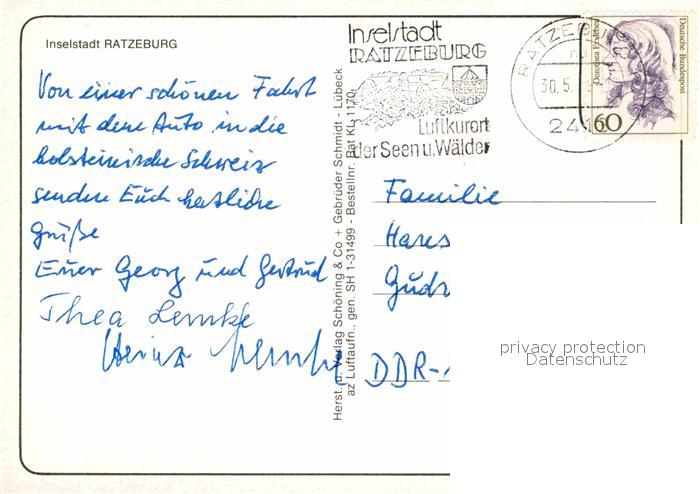 Inselstadt RATZEBURG
Von einer schönen Fahrt
mit dem Auto in die
holsteinische Schweiz
senden Euch herzliche
Grüße
Euer Georg und Gertrud
Thea Lemke
Heinz Lemke
Herst. u. Verlag Schöning & Co + Gebrüder Schmidt - Lübeck
az Luftaufn., gen. SH 1-31499 - Bestellnr. Rat KL 1170
Inselstadt
RATZEBURG
Luftkurort
der Seen u. Wälder
RATZEBURG
30.5.
241
Dorothea Erxleben
Deutsche Bundespost
60
Familie
Hans
Gudr
DDR-
privacy protection
Datenschutz